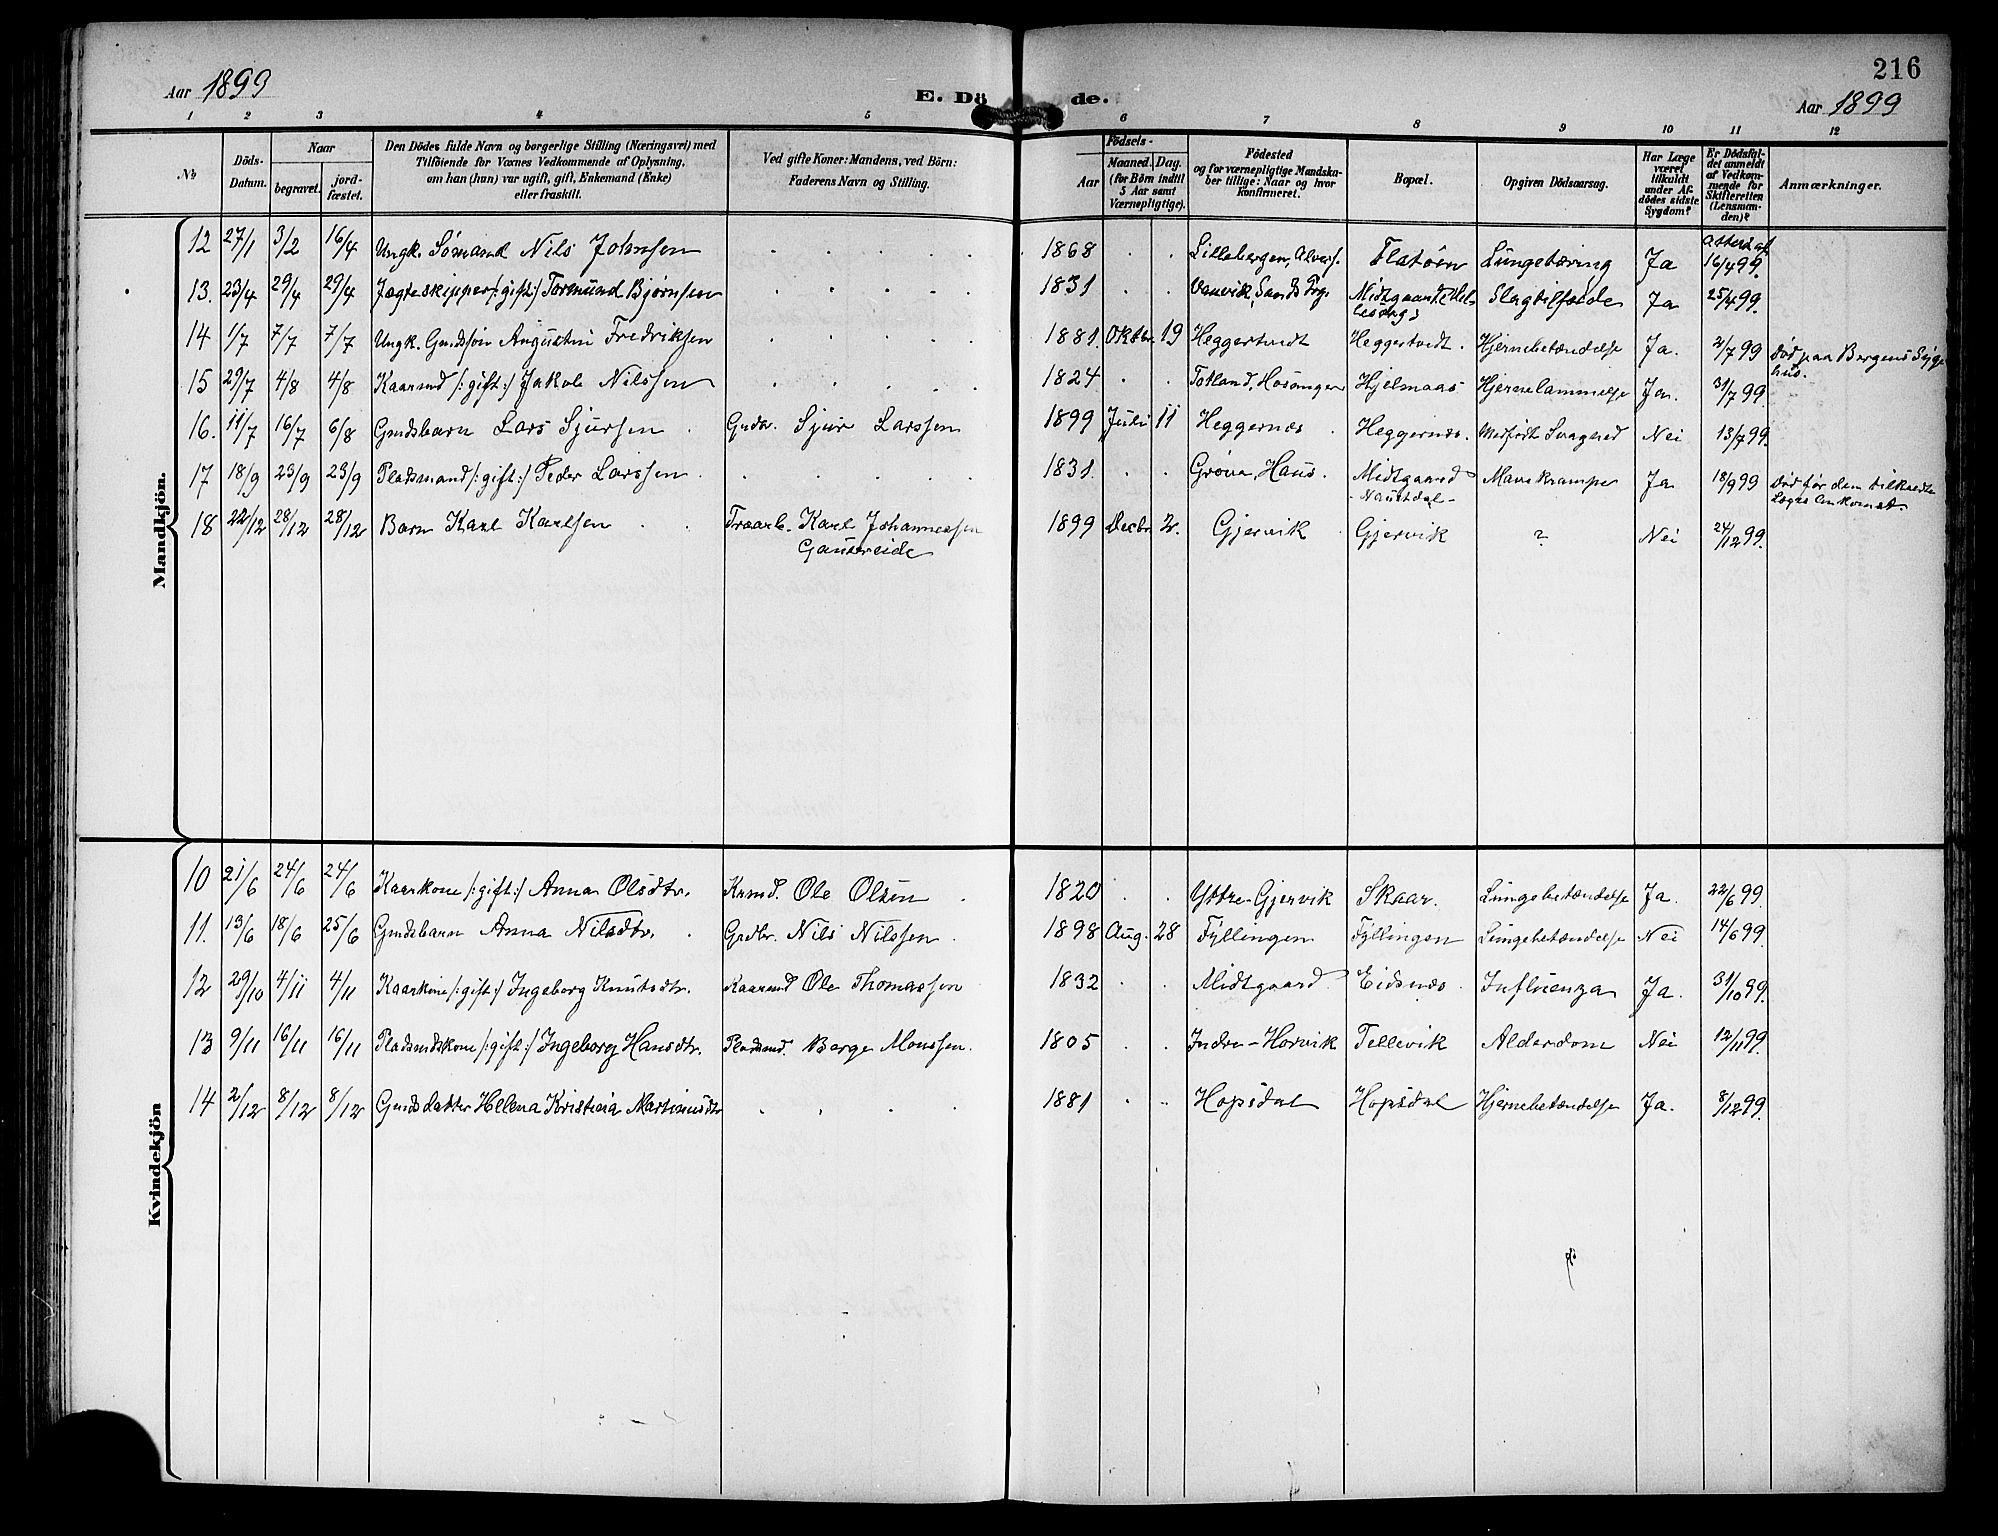 Aar 1899
E. Döde.
216
Aar 1899
1 2 3 4 5 6 7 8 9 10 11 12
No
Döds-Datum.
Naar
begravet.
jordfæstet.
Den Dödes fulde Navn og borgerlige Stilling (Næringsvei) med
Tilföiende for Voxnes Vedkommende af Oplysning,
om han (hun) var ugift, gift, Enkemand (Enke)
eller fraskilt.
Ved gifte Koner: Mandens, ved Börn:
Faderens Navn og Stilling.
Födsels-
Aar
Maaned. Dag.
(for Börn indtil
5 Aar samt
Værnepligtige).
Födested
og for værnepligtige Mandskaber tillige: Naar og hvor
konfirmeret.
Bopæl.
Opgiven Dödsaarsag.
Har Læge
været
tilkaldt
under Afdödes sidste
Sygdom?
Er Dödsfaldet anmeldt
af Vedkommende for
Skifteretten
(Lensmanden)?
Anmærkninger.
Mandkjön.
12 27/1 3/2 16/4 Ungk. Sömand Nils Johnsen 1868 Lillebergen, Alvers. Flatöen Lungetæring Ja Attest af 16/4 99.
13. 23/4 29/4 29/4 Jægteskipper /:gift:/ Tormund Bjørnsen 1831 Vanvik, Sands Prgj. Midtgaard Slagtilfælde Ja 25/4 99.
14 1/7 7/7 7/7 Ungk. Gaardsøn Augustin Fredriksen 1881. Oktbr. 19 Heggertvedt Heggertvedt. Hjernebetændelse Ja. 2/7 99 Død paa Bergens Sygehus.
15 29/7 4/8 4/8 Kaarmd /:gift:/ Jakob Nilssen 1824 Totland, Hosanger Hjelmaas Hjernelammelse Ja. 31/7 99.
16. 11/7 16/7 6/8 Gmdsbarn Lars Sjursen Grdbr. Sjur Larssen 1899 Juli 11 Heggernæs Heggernæs. Medfødt Svaghed Nei 13/7 99.
17 18/9 23/9 23/9 Pladsmand /:gift:/ Peder Larssen 1831. Grøna, Haus. Midtgaard - Nautdal - Mavekrampe Ja 18/9 99 Død før den tilkaldte Læges Ankomst.
18 22/12 28/12 28/12 Barn Karl Karlsen Fraarb. Karl Johannessen Gausereide 1899 Decbr 2. Gjervik Gjervik ? Nei 24/12 99.
Kvindekjön
10 21/6 24/6 24/6 Kaarkone /:gift:/ Anna Olsdtr. Krmd. Ole Olsen 1820 Ytre-Gjervik Skaar. Lungebetændelse Ja. 22/6 99.
11. 13/6 18/6 25/6 Gmdsbarn Anna Nilsdtr. Grdbr. Nils Nilssen 1898 Aug. 28 Fyllingen Fyllingen Lungebetændelse Nei 14/6 99.
12 29/10 4/11 4/11 Kaarkone /:gift:/ Ingeborg Knutsdtr. Kaarmd Ole Thomassen 1832 Midtgaard Eidsnæs Influenza Ja. 31/10 99.
13 9/11 16/11 16/11 Pladsmdskone /:gift:/ Ingeborg Hansdtr. Pladsmd. Berge Monssen. 1805 Indre-Horvik Tellevik Alderdom Nei 12/11 99.
14 2/12 8/12 8/12 Gmdsdatter Helena Kristina Martinusdtr 1881 Hopsdal Hopsdal Hjernebetændelse Ja. 8/12 99.